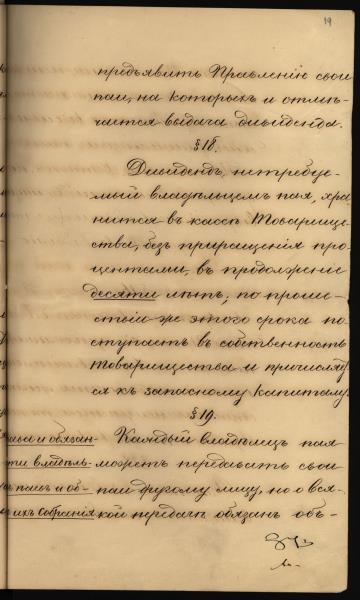 19
предъявить Правленію свои
паи, на которыхъ и отмѣ-
чается выдача дивиденда.
§ 18.
Дивидендъ, нетребуе-
мый владѣльцемъ пая, хра-
нится въ кассѣ Товарище-
ства, безъ приращенія про-
центами, въ продолженіе
десяти лѣтъ, по проше-
ствіи же этого срока по-
ступаетъ въ собственность
Товарищества и причисляет-
ся къ запасному капиталу.
§ 19.
ава и обязан-
Каждый владѣлецъ пая
ти владѣль-
можетъ передавать свои
ъ паевъ и об-
паи другому лицу, но о вся-
ихъ Собранія
кой передачѣ обязанъ объ-